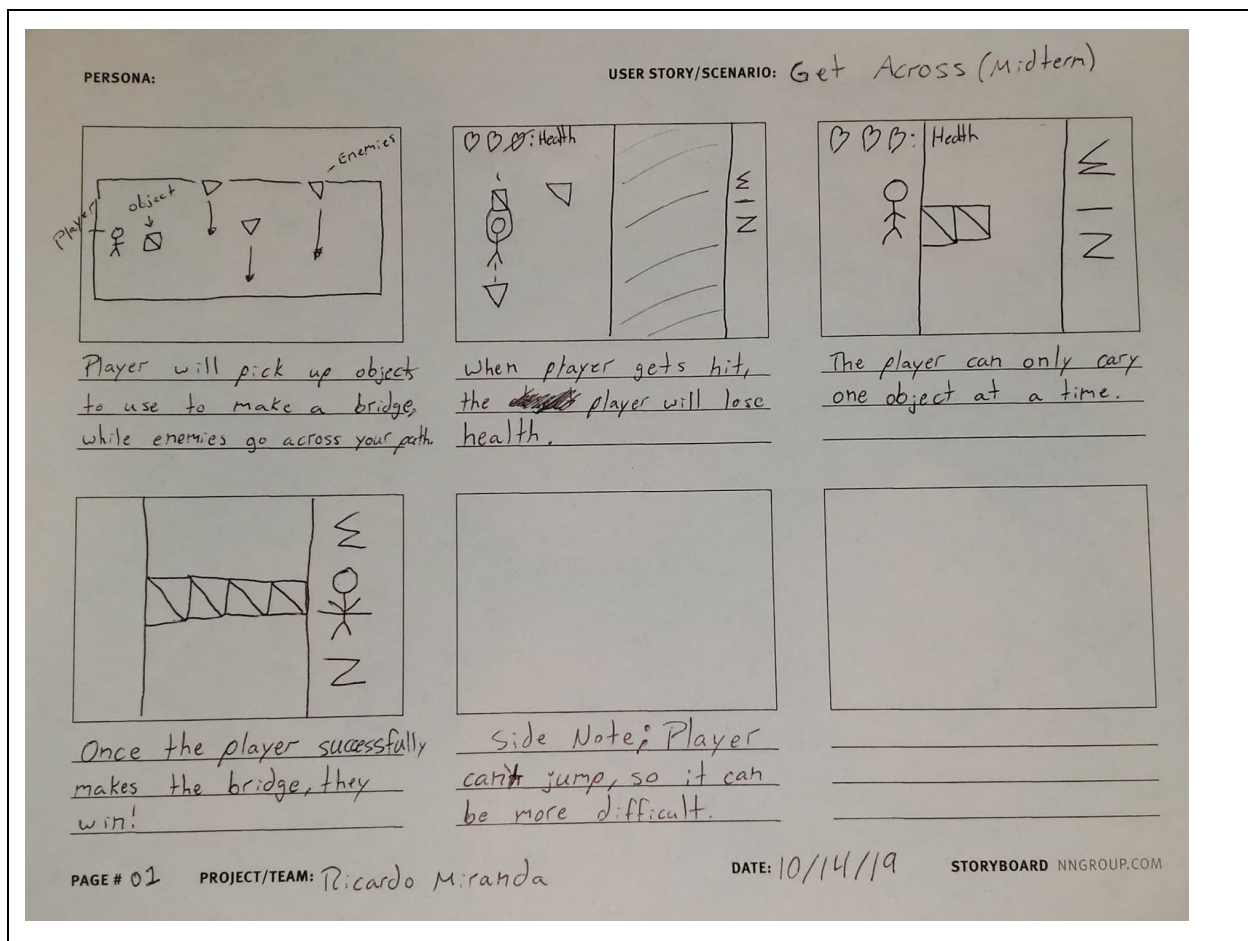 PERSONA:
USER STORY/SCENARIO: Get Across (Midterm)
Enemies
object
Player
: Health
WIN
: Health
WIN
Player will pick up object
to use to make a bridge,
while enemies go across your path.
When player gets hit,
the player will lose
health.
The player can only cary
one object at a time.
W
N
Once the player successfully
makes the bridge, they
win!
Side Note: Player
can't jump, so it can
be more difficult.
PAGE # 01
PROJECT/TEAM: Ricardo Miranda
DATE: 10/14/19
STORYBOARD NNGROUP.COM